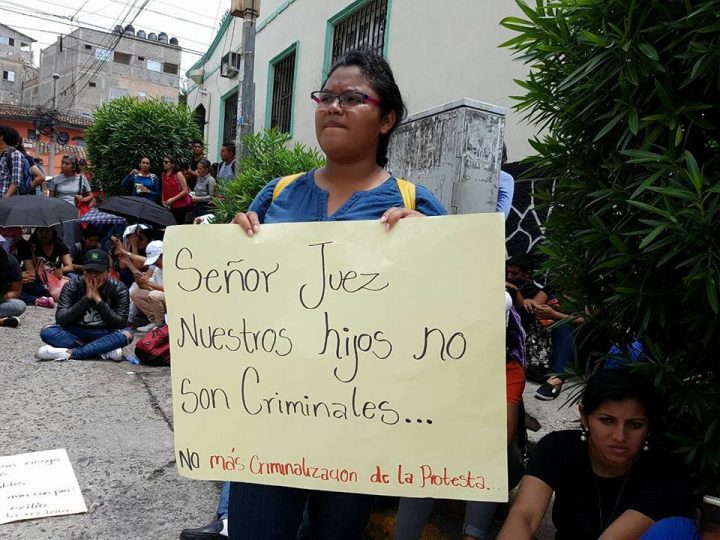 Señor Juez
Nuestros hijos no
son Criminales...
No más Criminalización de la Protesta...
aún con pio
exilio